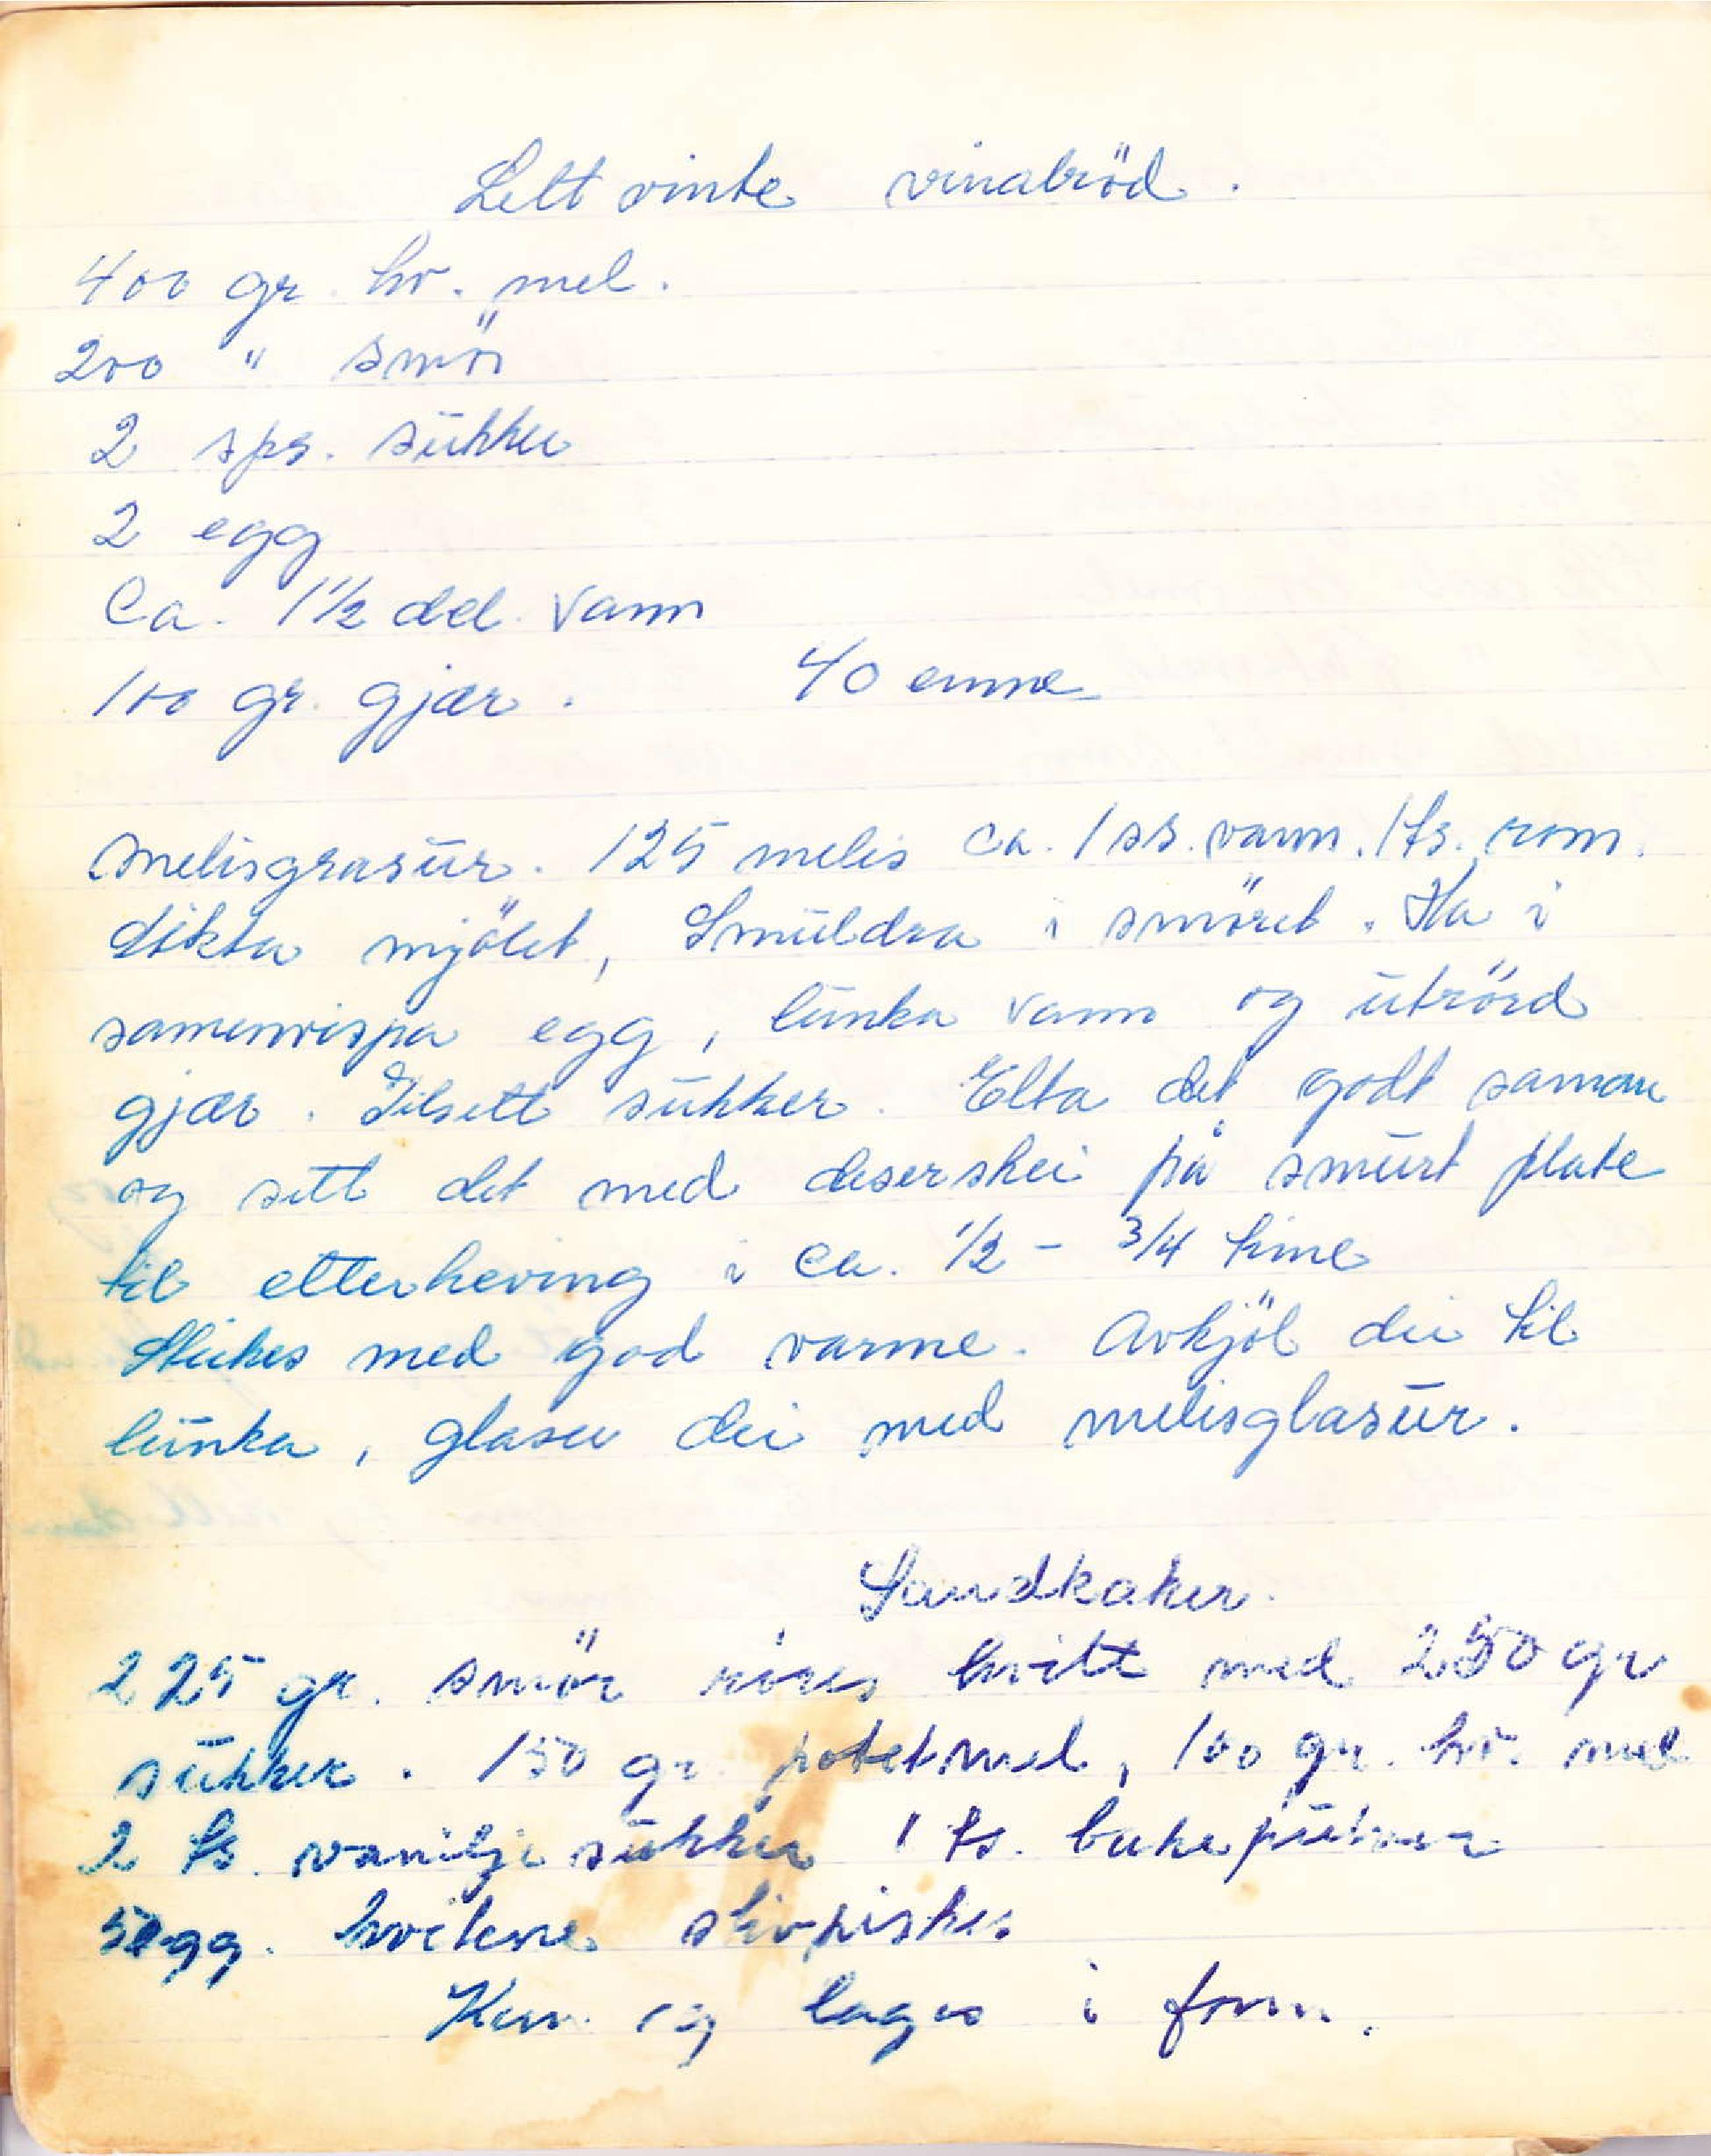 Lettvinte vinabröd.
400 gr. hv. mel.
200 " smör
2 sps. sukker
2 egg
Ca. 1½ del. vann
100 gr. gjær. 40 emne
Melisgrasur. 125 melis ca. 1 ss. vann. 1 ts. rom.
Sikta mjölet, Smuldra i smöret. Ha i
samenvispa egg, lunka vann og utrörd
gjær. Tilsett sukker. Elta det godt saman
og sett det med deserskei på smurt plate
til etterheving i ca. ½ - ¾ time
Steikes med god varme. Avkjöl dei til
lunka, glaser dei med melisglasur.
Sandkaker.
225 gr. smör röres hvitt med 250 gr
sukker. 150 gr. potetmel, 100 gr. hv. mel
2 ts. vanilje sukker 1 ts. bakepulver
5 egg. hvitene stivpiskes
Kan og lages i form.